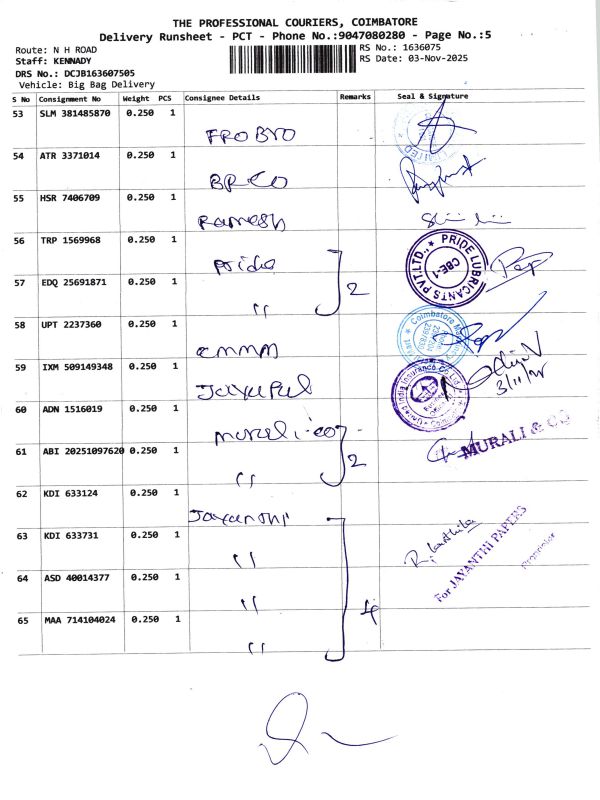 THE PROFESSIONAL COURIERS, COIMBATORE
Delivery Runsheet - PCT - Phone No.:9047080280 - Page No.:5
Route: N H ROAD
RS No.: 1636075
Staff: KENNADY
RS Date: 03-Nov-2025
DRS No.: DCJB163607505
Vehicle: Big Bag Delivery
S No Consignment No Weight PCS Consignee Details Remarks Seal & Signature
53 SLM 381485870 0.250 1
LIMITED
54 ATR 3371014 0.250 1
BRCO
55 HSR 7406709 0.250 1
Ramesh
56 TRP 1569968 0.250 1
Pride
PRIDE LUBRICANTS PVT.LTD.,
CBE-1
2
57 EDQ 25691871 0.250 1
"
58 UPT 2237360 0.250 1
cmmm
59 IXM 509149348 0.250 1
3/11/25
60 ADN 1516019 0.250 1
murali-co
MURALI & CO
61 ABI 20251097620 0.250 1
"
2
62 KDI 633124 0.250 1
Jayanthi
63 KDI 633731 0.250 1
"
For JAYANTHI PAPERS
Proprietor
64 ASD 40014377 0.250 1
"
4
65 MAA 714104024 0.250 1
"